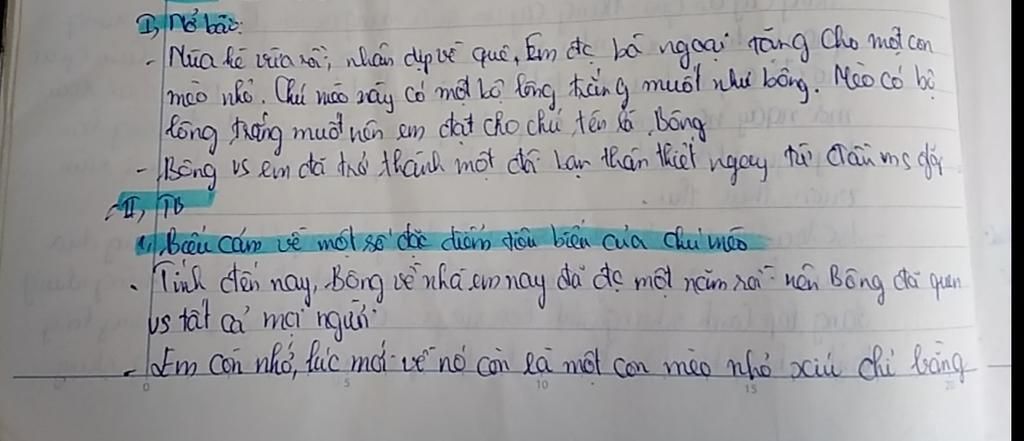 I, Mở bài:
- Mùa hè vừa rồi, nhân dịp về quê, Em đc bà ngoại tặng cho một con
mèo nhỏ. Chú mèo này có một bộ lông trắng muốt như bông. Mèo có bộ
lông trắng muốt nên em đặt cho chú tên là Bông
- Bông vs em đã trở thành một đôi bạn thân thiết ngay từ
II, TB
1, Biểu cảm về một số đặc điểm tiêu biểu của chú mèo
- Tính đến nay, Bông về nhà em nay đã đc một năm rồi nên Bông đã quen
vs tất cả mọi người
- Em còn nhớ, lúc mới về nó còn là một con mèo nhỏ xíu chỉ bằng
0 5 10 15 20